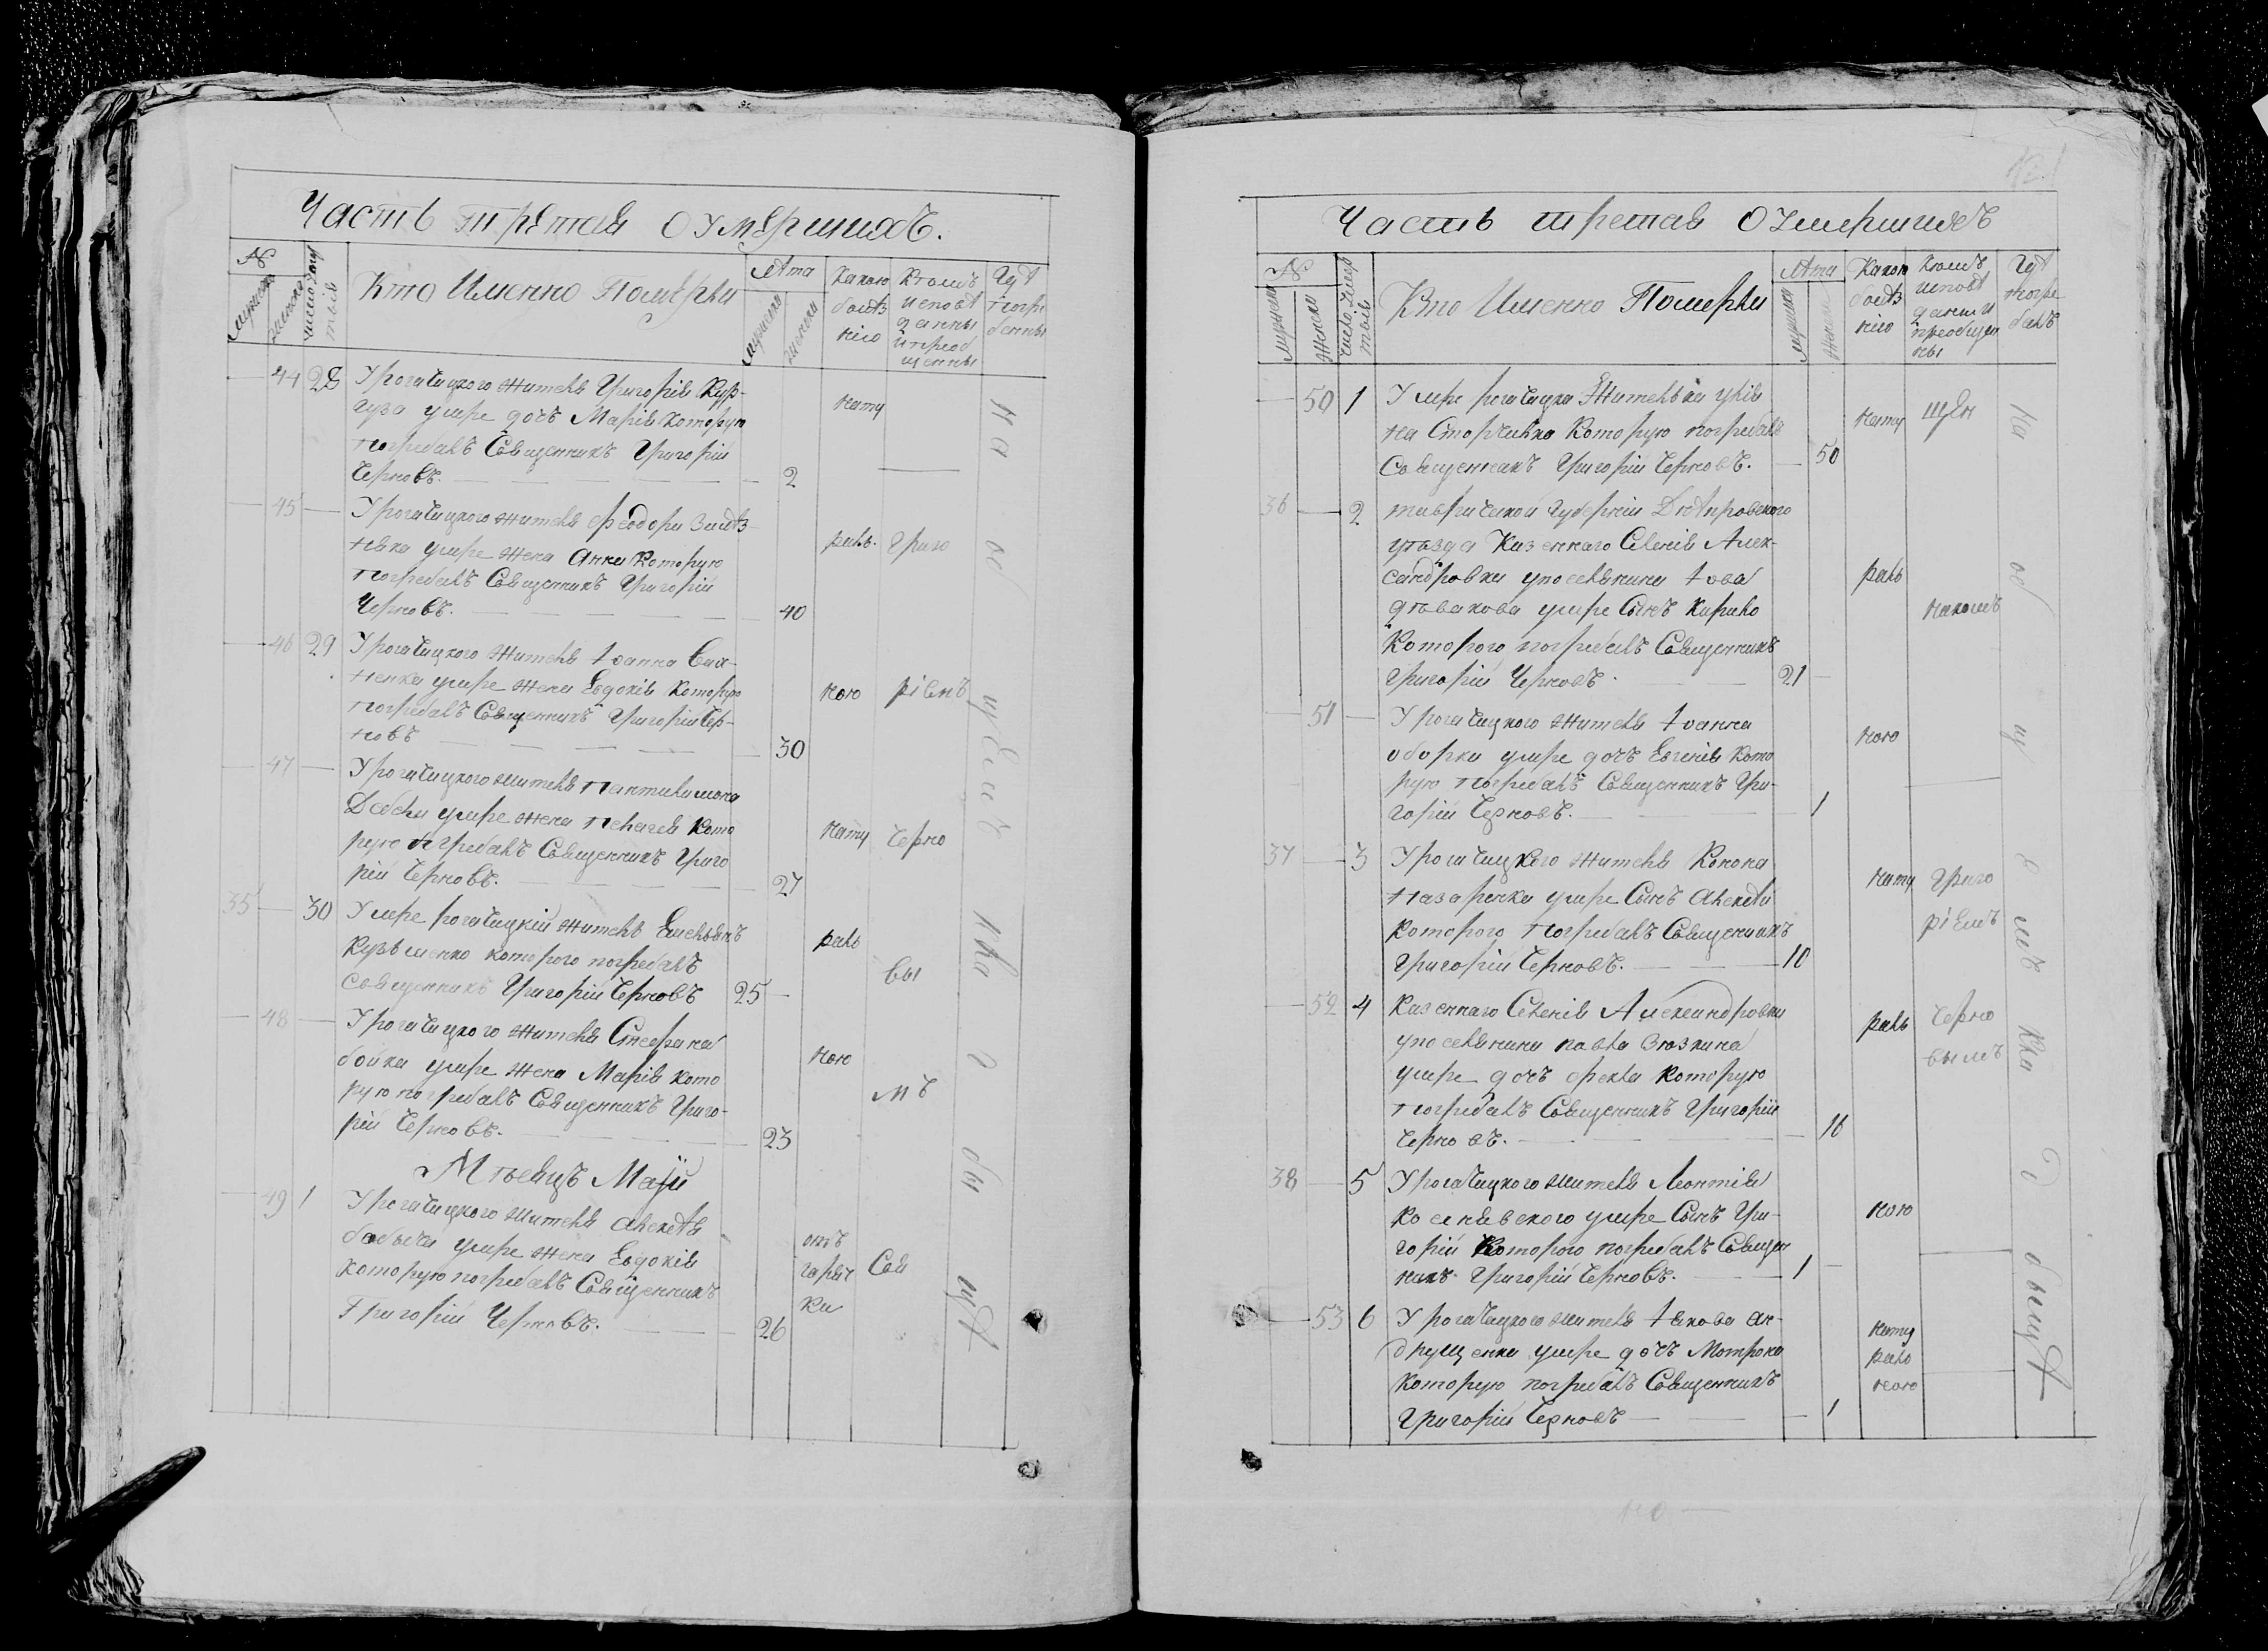 Часть третая о умершихъ.
№
мужска
женска
число умер
твія
Кто Именно Померли
лѣта
мужска
женска
Какою
болѣз
нію
Кѣмъ
исповѣ
данны
и приоб
щенны
Гдѣ
погре
бенны
44 28 У рогачицкого жителя Григорія Кур-
гуза умре дочь Марія которую
погребалъ Священникъ Григорій
Черновъ. 2
нату
45 У рогачицкого жителя Феодора Зилѣз
няка умре жена Анна которую
погребалъ Священникъ Григорій
Черновъ. 40
раль. Григо
46 29 У рогачицкого жителя Іоанна
ненка умре жена Евдокія которую
погребалъ Священникъ Григорій Чер-
новъ 30
ною ріемъ
47 У рогачицкого жителя Пантилимона
умре жена Пелагея кото
рую погребалъ Священникъ Григо
рій Черновъ. 27
нату Черно
35 30 Умре рогачицкій жителъ Емельянъ
Кузьменко которого погребалъ
священникъ Григорій Черновъ 25
раль
вы
48 У рогачицкого жителя Стефана
бойка умре жена Марія кото
рую погребалъ Священникъ Григо-
рій Черновъ. 23
ною
мъ
Мѣсяцъ Май
49 1 У рогачицкого жителя Алексѣя
бабыча умре жена Евдокія
которую погребалъ Священникъ
Григорій Черновъ. 26
отъ
горяч
ки
Свя
На общемъ кладбищѣ
Часть третая о умершихъ
№
мужска
женска
число умер
твія
Кто Именно Померли
лѣта
мужска
женска
Какою
болѣз
нію
Кѣмъ
исповѣ
данны и
приобщен
ны
Гдѣ
погре
банъ
50 1 Умре рогачицка жителька Улія
на Сторчивка которую погребалъ
Священникъ Григорій Черновъ. 50
нату щен
36 2 таврической губерніи Днѣпровского
уѣзда Казенного Селенія Алек-
сандровки у поселянина Іова
дѣвакова умре Сынъ Кирило
которого погребалъ Священникъ
Григорій Черновъ. 21
раль
никомъ
51 У рогачицкого жителя Іоанна
оборки умре дочъ Евгенія кото
рую погребалъ Священникъ Гри-
горій Черновъ. 1
ною
37 3 У рогачицкого жителя Конона
Назаренка умре Сынъ Алексѣй
которого погребалъ Священникъ
Григорій Черновъ. 10
нату Григо
ріемъ
52 4 Казенного Селенія Александровки
у поселянина павла Зюзкина
умре дочъ фекла которую
погребалъ Священникъ Григорій
Черновъ. 16
раль Черно
вымъ
38 5 У рогачицкого жителя Леонтія
Косенявского умре Сынъ Гри-
горій которого погребалъ Священ
никъ Григорій Черновъ. 1
ною
53 6 У рогачицкого жителя Іакова Ан-
друщенка умре дочъ Мотрона
которую погребалъ Священникъ
Григорій Черновъ 1
нату
раль
ною
На общемъ кладбищѣ